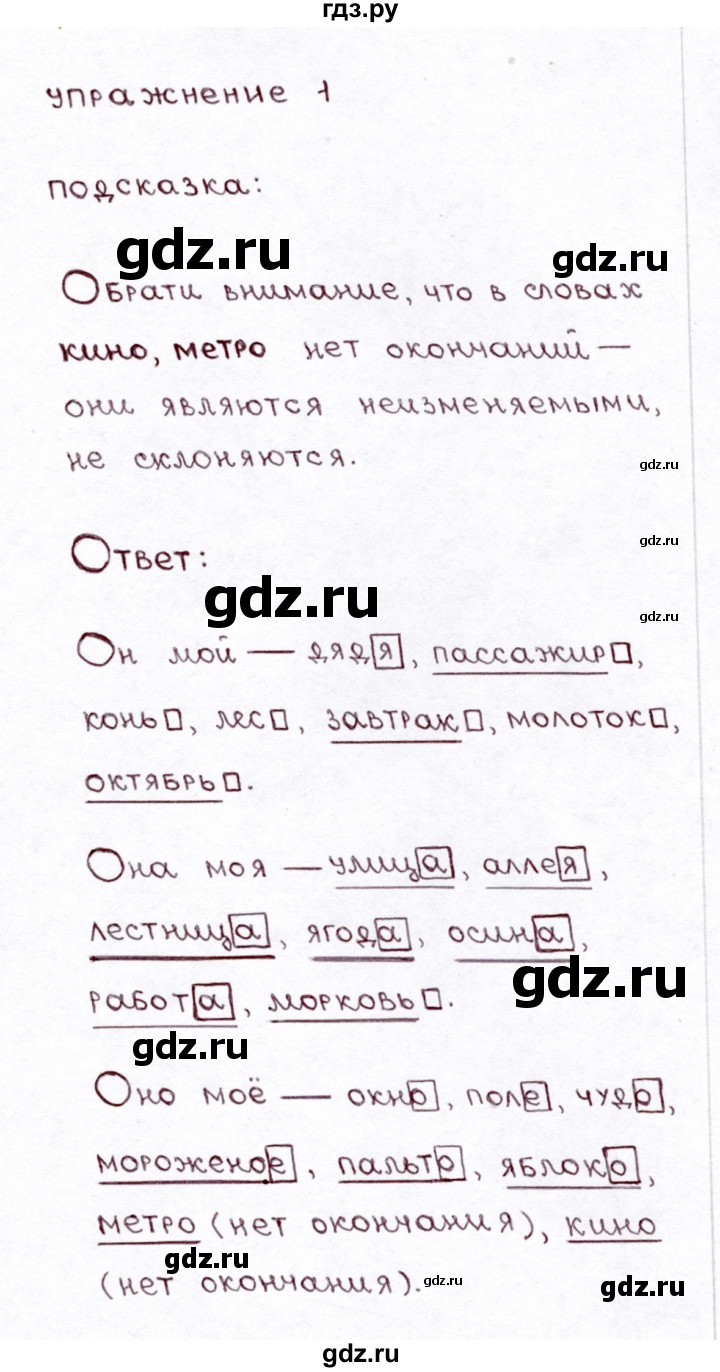 гдз.ру
упражнение 1
подсказка:
gdz.ru
gdz.ru
Обрати внимание, что в словах
кино, метро нет окончаний —
они являются неизменяемыми,
не склоняются.
gdz.ru
gdz.ru
Ответ:
gdz.ru
gdz.ru
Он мой — дядя, пассажир,
конь, лес, завтрак, молоток,
октябрь.
Она моя — улица, аллея,
лестница, ягода, осина,
gdz.ru
работа, морковь.
gdz.ru
Оно моё — окно, поле, чудо,
мороженое, пальто, яблоко,
метро (нет окончания), кино
gdz.ru
(нет окончания).
gdz.ru
gdz.ru
gdz.ru